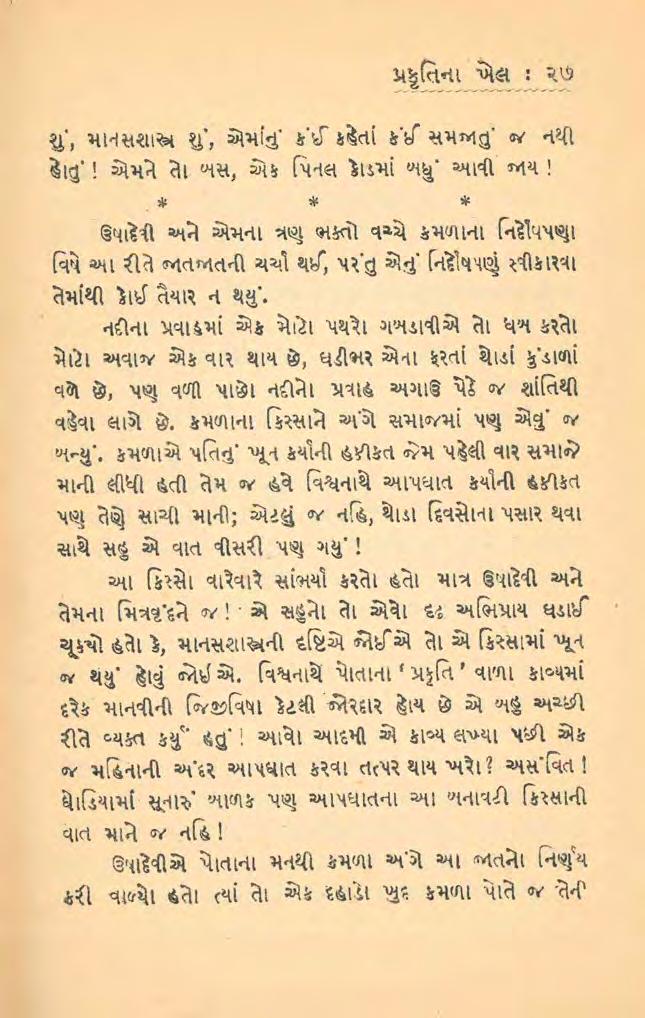 પ્રકૃતિના ખેલ : ૨૭
શું, માનસશાસ્ત્ર શું, એમાંનું કંઈ કહેતાં કંઈ સમજાતું જ નથી
હોતું ! એમને તો બસ, એક પિનલ કોડમાં બધું આવી જાય !
* * *
ઉષાદેવી અને એમના ત્રણ ભક્તો વચ્ચે કમળાના નિર્દોષપણા
વિષે આ રીતે જાતજાતની ચર્ચા થઈ, પરંતુ એનું નિર્દોષપણું સ્વીકારવા
તેમાંથી કોઈ તૈયાર ન થયું.
નદીના પ્રવાહમાં એક મોટો પથરો ગબડાવીએ તો ધબ કરતો
મોટો અવાજ એક વાર થાય છે, ઘડીભર એના ફરતાં થોડાં કુંડાળાં
વળે છે, પણ વળી પાછો નદીનો પ્રવાહ અગાઉ પેઠે જ શાંતિથી
વહેવા લાગે છે. કમળાના કિસ્સાને અંગે સમાજમાં પણ એવું જ
બન્યું. કમળાએ પતિનું ખૂન કર્યાની હકીકત જેમ પહેલી વાર સમાજે
માની લીધી હતી તેમ જ હવે વિશ્વનાથે આપઘાત કર્યાની હકીકત
પણ તેણે સાચી માની; એટલું જ નહિ, થોડા દિવસોના પસાર થવા
સાથે સહુ એ વાત વીસરી પણ ગયું !
આ કિસ્સો વારેવારે સાંભર્યા કરતો હતો માત્ર ઉષાદેવી અને
તેમના મિત્રવૃંદને જ ! એ સહુનો તો એવો દૃઢ અભિપ્રાય ઘડાઈ
ચૂક્યો હતો કે, માનસશાસ્ત્રની દૃષ્ટિએ જોઈએ તો એ કિસ્સામાં ખૂન
જ થયું હોવું જોઈએ. વિશ્વનાથે પોતાના ‘ પ્રકૃતિ ’ વાળા કાવ્યમાં
દરેક માનવીની જિજીવિષા કેટલી જોરદાર હોય છે એ બહુ અચ્છી
રીતે વ્યક્ત કર્યું હતું ! આવો આદમી એ કાવ્ય લખ્યા પછી એક
જ મહિનાની અંદર આપઘાત કરવા તત્પર થાય ખરો ? અસંવિત !
ઘોડિયામાં સૂનારું બાળક પણ આપઘાતના આ બનાવટી કિસ્સાની
વાત માને જ નહિ !
ઉષાદેવીએ પોતાના મનથી કમળા અંગે આ જાતનો નિર્ણય
કરી વાળ્યો હતો ત્યાં તો એક દહાડો ખુદ કમળા પોતે જ તેની